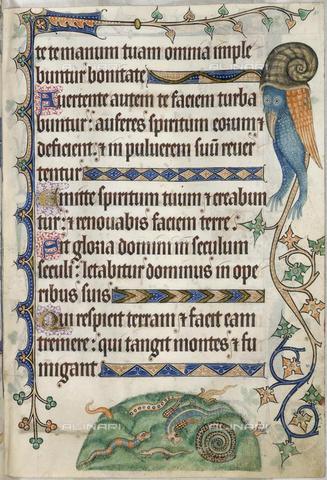 te manum tuam omnia imple
buntur bonitate
Avertente autem te faciem turba
buntur: auferes spiritum eorum &
deficient. & in pulverem suū rever
tentur
Emitte spiritum tuum & creabun
tur: & renovabis faciem terre.
Sit gloria domini in seculum
seculi: letabitur dominus in ope
ribus suis
Qui respicit terram & facit eam
tremere: qui tangit montes & fu
migant
ALINARI
ALINARI